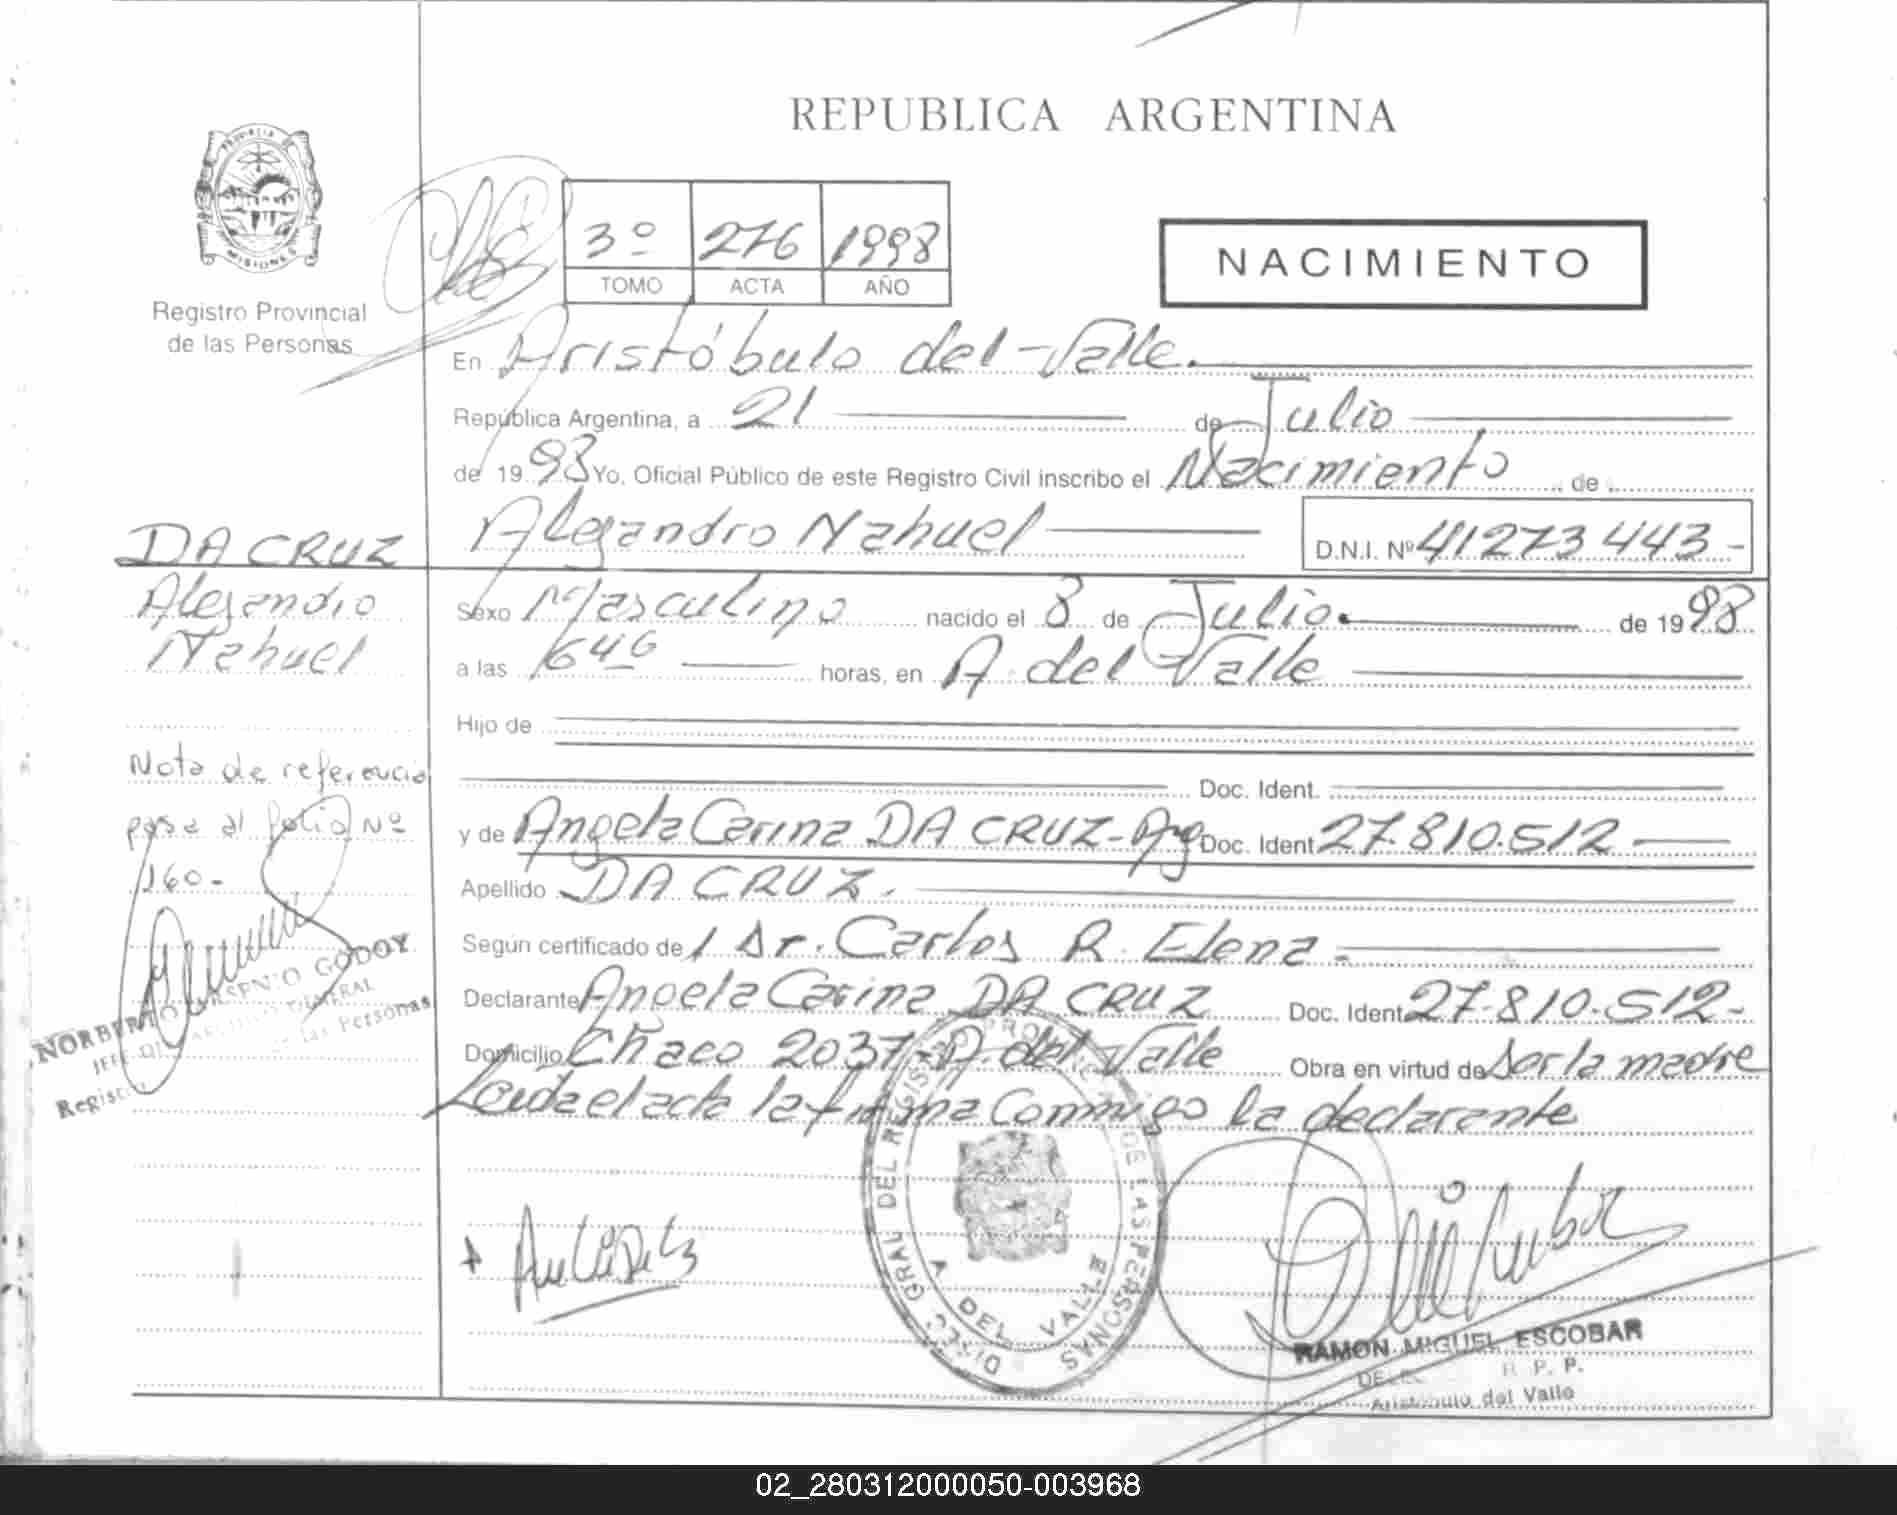 REPUBLICA ARGENTINA
PROVINCIA DE
MISIONES
Registro Provincial
de las Personas
3º 276 1998
TOMO ACTA AÑO
NACIMIENTO
En Aristóbulo del Valle.
República Argentina, a 21 de Julio
de 1998 Yo, Oficial Público de este Registro Civil inscribo el Nacimiento de
Alejandro Nahuel D.N.I. Nº 41273443-
DA CRUZ
Alejandro
Nahuel
Sexo Masculino nacido el 8 de Julio. de 1998
a las 646 horas, en A. del Valle
Hijo de
Doc. Ident.
y de Angela Carina DA CRUZ-Arg Doc. Ident 27.810.512
Apellido DA CRUZ.
Según certificado de Dr. Carlos R. Elena-
Declarante Angela Carina DA CRUZ Doc. Ident 27.810.512-
Domicilio Chaco 2037-A. del Valle Obra en virtud de ser la madre
Leida el acta la firma Conmigo la declarante
Nota de referencia
pasa al folio Nº
160-
NORBERTO ARSENIO GODOY
JEFE ARCHIVO GENERAL
Registro de las Personas
DIREC. GRAL DEL REGISTRO PROVINCIAL DE LAS PERSONAS
A DEL VALLE
RAMON MIGUEL ESCOBAR
R. P. P.
Aristobulo del Valle
02_280312000050-003968